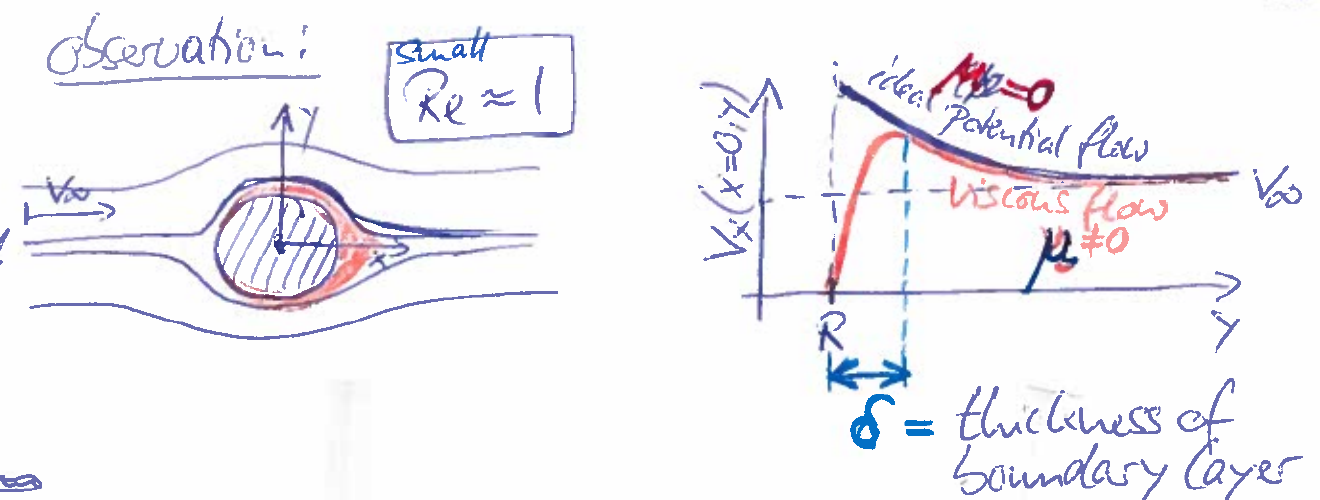 observation:
small
Re ≈ 1
Y
V∞
x
Vx(x=0,y)
μ=0
ideal
Potential flow
V∞
viscous flow
μ≠0
R
Y
δ = thickness of
boundary layer